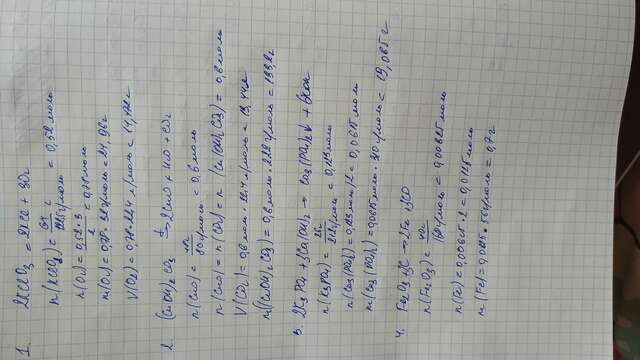 1. 2KClO3 = 2KCl + 3O2
n(KClO3) = 64 г / 122,5 г/моль = 0,52 моль
n(O2) = 0,52 · 3 / 2 = 0,78 моль
m(O2) = 0,78 · 32 г/моль = 24,96 г
V(O2) = 0,78 · 22,4 л/моль = 17,472 л
2. (CuOH)2CO3 t→ 2CuO + H2O + CO2
n(CuO) = 80 г/моль = 0,6 моль
n(CuO) = n(CO2) = n((CuOH)2CO3) = 0,6 моль
V(CO2) = 0,6 моль · 22,4 л/моль = 13,44 л
m((CuOH)2CO3) = 0,6 моль · 222 г/моль = 133,2 г
3. 2K3PO4 + 3Ca(OH)2 → Ca3(PO4)2↓ + 6KOH
n(K3PO4) = г/моль = моль
n(Ca3(PO4)2) = моль/2 = 0,0615 моль
m(Ca3(PO4)2) = 0,0615 моль · г/моль = 19,065 г
4. Fe2O3 + 3C → 2Fe + 3CO
n(Fe2O3) = 160 г/моль = 0,00625 моль
n(Fe) = 0,00625 · 2 = 0,0125 моль
m(Fe) = 0,0125 · 56 г/моль = 0,7 г